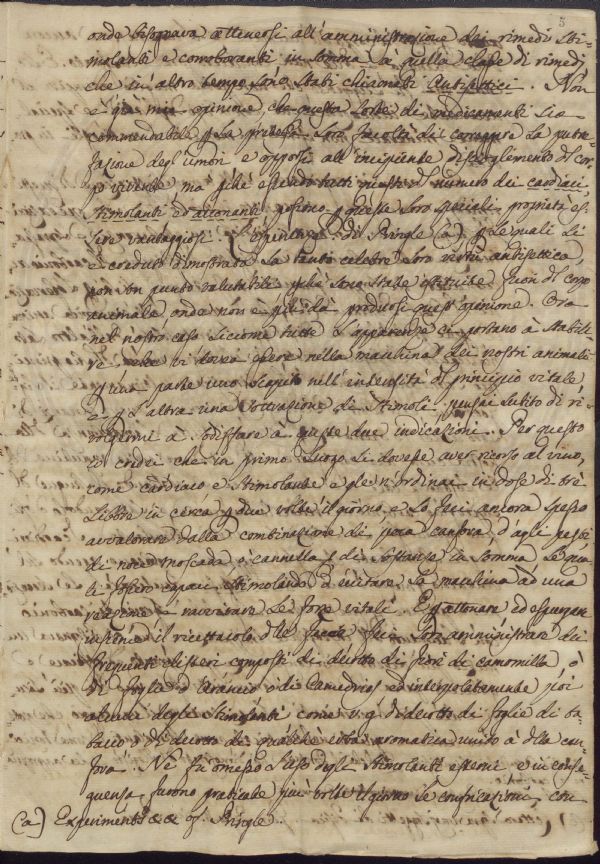 8
onde bisognava attenersi all'amministrazione dei rimedi sti-
molanti e corroboranti in somma à quella classe di rimedi
che in altro tempo sono stati chiamati Antisettici. Non
è già mia opinione, che questa sorte di medicamenti sia
commendabile p la pretesa loro facoltà di correggere la putre-
fazione degl'umori e opporsi all'incipiente discioglimento dl cor-
po vivente ma pchè essendo tutti questi dl numero dei cardiaci,
stimolanti ed attonanti possono p queste loro speciali proprietà es-
sere vantaggiosi. L'esperienze di Pringle (a) p le quali si
è creduto dimostrata la tanto celebre loro virtù antisettica,
non un punto valutabili pchè sono state istituite fuori dl corpo
animale, onde non è più da prodursi quest'opinione. Ora
nel nostro caso siccome tutte l'apparenze ci portano à stabili-
re, che vi dovea essere nella macchina dei nostri animali
p una parte uno scapito nell'intensità dl principio vitale
e p l'altra una sottrazione di stimoli pensai subito di ri-
volgermi à sodisfare à queste due indicazioni. Per questo
io credei che in primo luogo si dovesse aver ricorso al vino,
come cardiaco e stimolante e gle n'ordinai in dose di tre
libbre in cerca p due volte il giorno e lo feci ancora spesso
avvalorare dalla combinazione di poca canfora, d'agli pesti
di noce moscada, ò cannella e di sostanze in somma le qua-
li fossero capaci stimolando d'eccitare la macchina ad una
reazione è ravvivare le forze vitali. E p attonare ed espurgare
insieme il ricettacolo dlle feccie feci loro amministrare dei
frequenti clisteri composti di decotto di fiori di camomilla ò
di foglie d'Arancio ò di Camedrios ed interpolatamente poi
alcuni degli stimolanti come v.g. di decotto di foglie di ta-
bacco ò di decotto di qualche erba aromatica unito à dlla can-
fora. Nè fù omesso l'uso degli stimolanti esterni e in conse-
quenza furono praticate più volte il giorno le confricazioni, con
(a) Experiments &c &c of Pringle